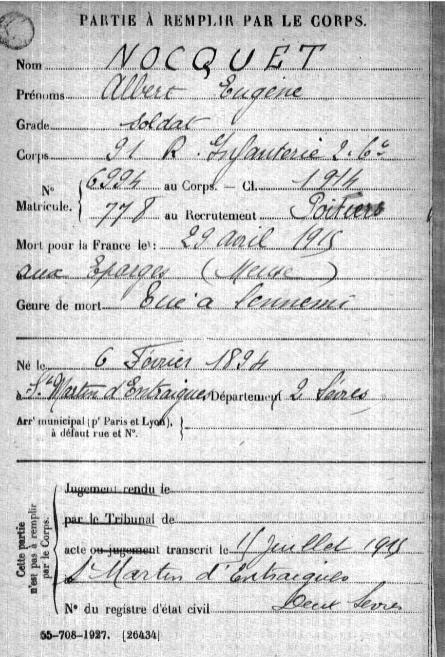 PARTIE À REMPLIR PAR LE CORPS.
Nom NOCQUET
Prénoms Albert Eugène
Grade soldat
Corps 91 R. Infanterie 2. Cie
N° 6994 au Corps. — Cl. 1914
Matricule. 778 au Recrutement Poitiers
Mort pour la France le : 29 avril 1915
aux Eparges (Meuse)
Genre de mort Tué a lennemi
Né le 6 Février 1894
à St Martin d'Entraigues Département 2 Sèvres
Arrt municipal (pr Paris et Lyon),
à défaut rue et N°.
Cette partie
n'est pas à remplir
par le Corps.
Jugement rendu le
par le Tribunal de
acte ou jugement transcrit le 15 Juillet 1915
St Martin d'Entraigues
Deux Sevres
N° du registre d'état civil
55-708-1927. [26434]